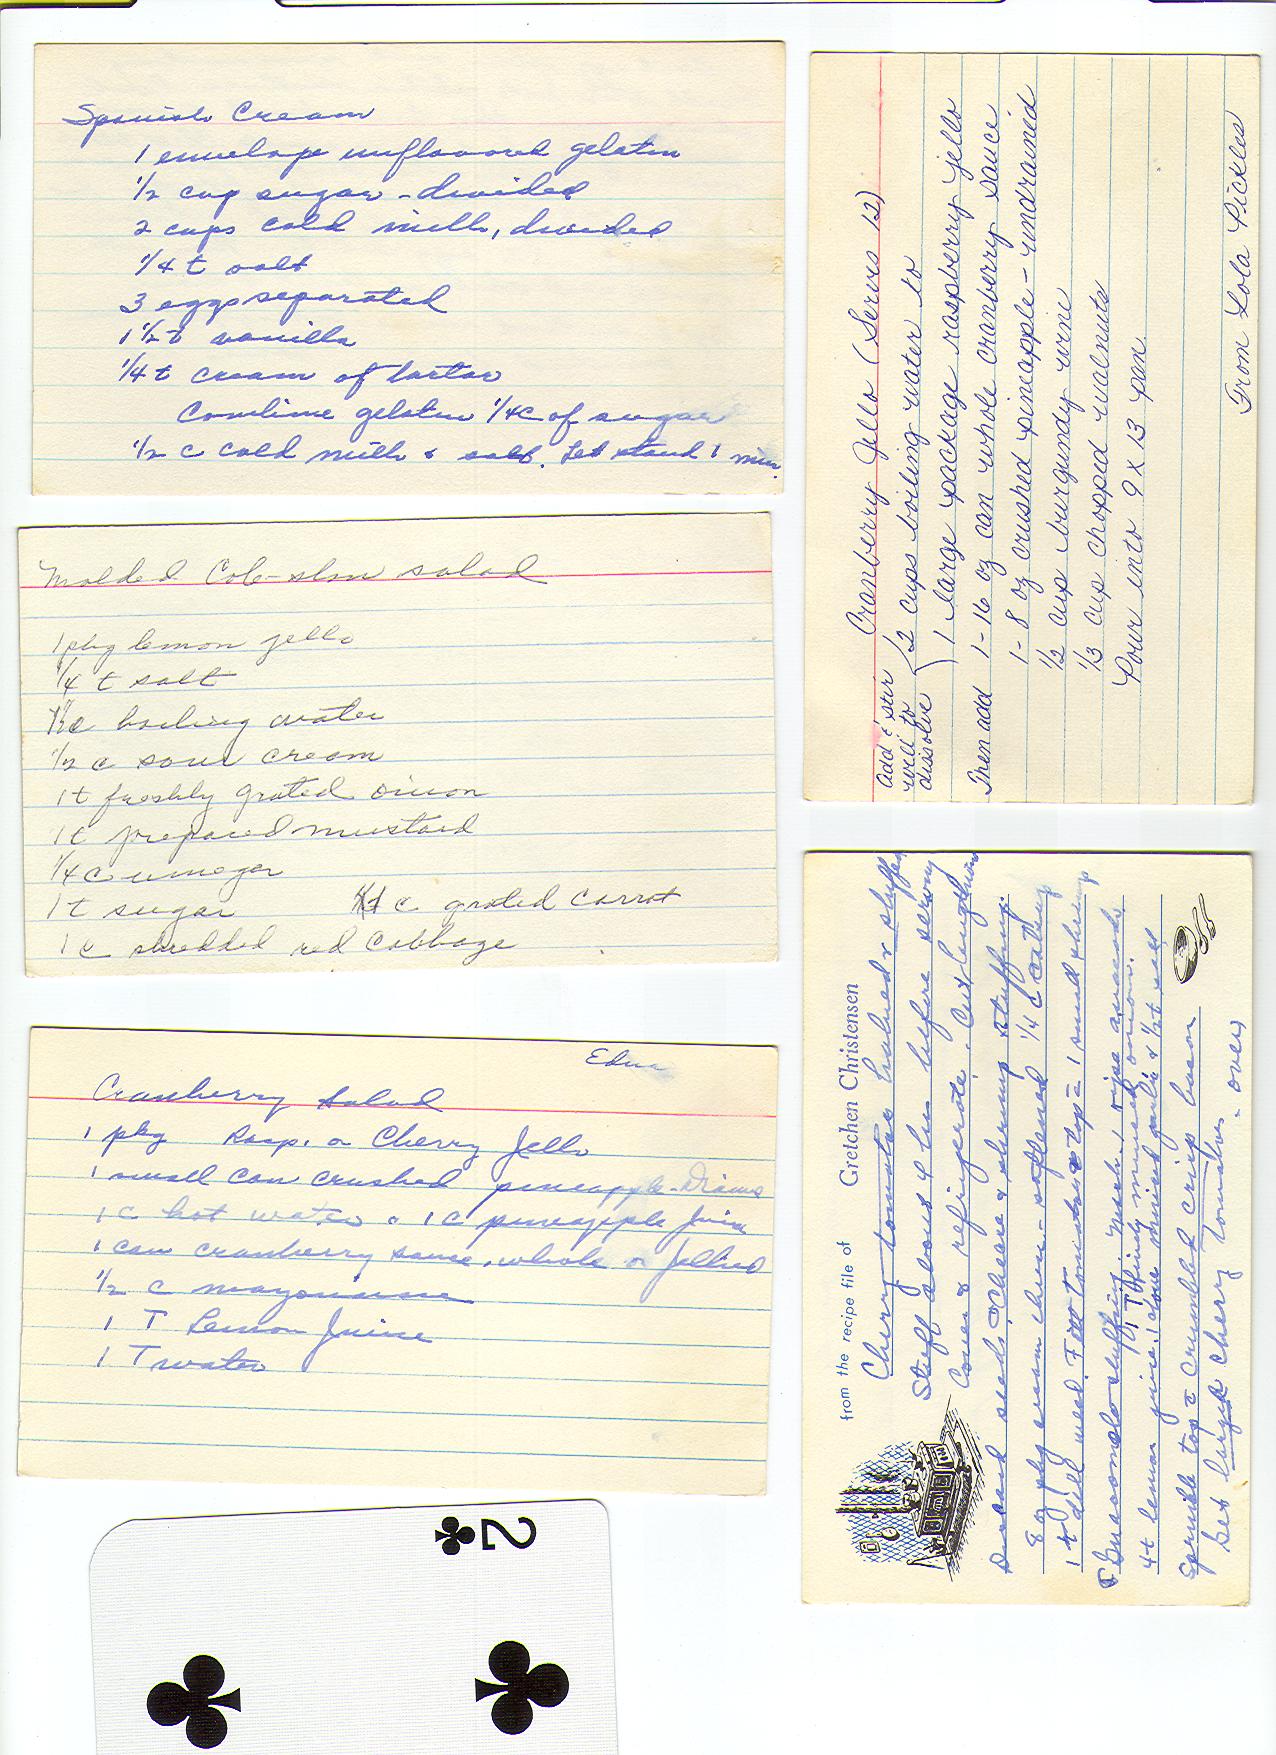 Spanish Cream
1 envelope unflavored gelatin
1/2 cup sugar - divided
2 cups cold milk, divided
1/4 t salt
3 eggs separated
1 1/2 t vanilla
1/4 t cream of tartar
Combine gelatin 1/4 c of sugar
1/2 c cold milk & salt. Let stand 1 min.
Molded Cole-slaw salad
1 pkg lemon jello
1/4 t salt
c boiling water
1/2 c sour cream
1 t freshly grated onion
1 t prepared mustard
1/4 c vinegar
1 t sugar
1 c grated carrot
1 c shredded red cabbage
Edna
Cranberry Salad
1 pkg Rasp. or Cherry Jello
1 small can crushed pineapple - Drain
1 c hot water & 1 c pineapple juice
1 can cranberry sauce, whole or Jellied
1/2 c mayonnaise
1 T Lemon Juice
1 T water
2
Cranberry Jello (Serves 12)
Add & stir well to dissolve
2 cups boiling water to
1 large package raspberry jello
Then add 1 - 16 oz can whole cranberry sauce
1 - 8 oz crushed pineapple - undrained
1/2 cup burgundy wine
1/3 cup chopped walnuts
Pour into 9 x 13 pan.
From Lola Pickles
from the recipe file of Gretchen Christensen
Cherry tomatoes halved & stuffed
Stuff about 4 hrs before serving
Cover & refrigerate. Cut lengthwise
Discard seeds. Cheese & shrimp stuffing:
8 oz pkg cream cheese - softened 1/4 c catsup
1 t dill weed. tomatoes & top = 1 small shrimp
Guacamole stuffing: Mash 1 ripe avocado,
1 T finely minced onion.
4 t lemon juice, 1 clove minced garlic & 1/2 t salt
Sprinkle top c crumbled crisp bacon
Get large cherry tomatoes
- over